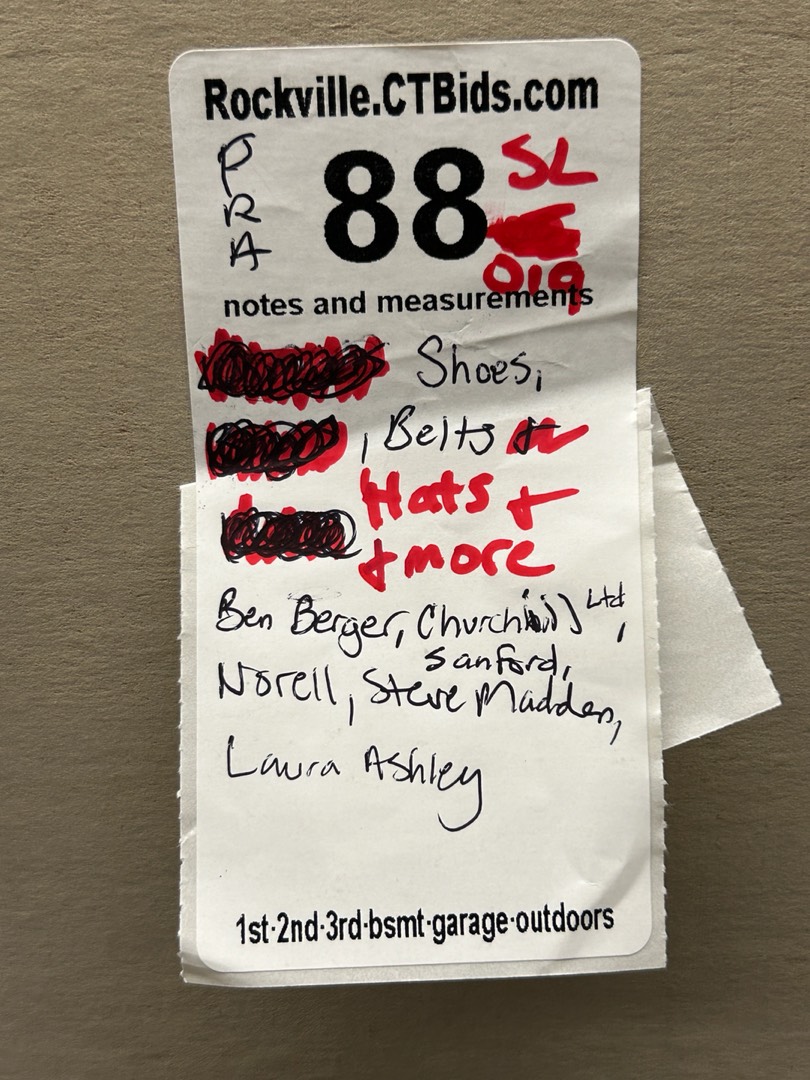 Rockville.CTBids.com
PRA 88 SL
019
notes and measurements
Shoes,
, Belts +
Hats +
+ more
Ben Berger, Churchill Ltd,
Sanford,
Norell, Steve Madden,
Laura Ashley
1st·2nd·3rd·bsmt·garage·outdoors